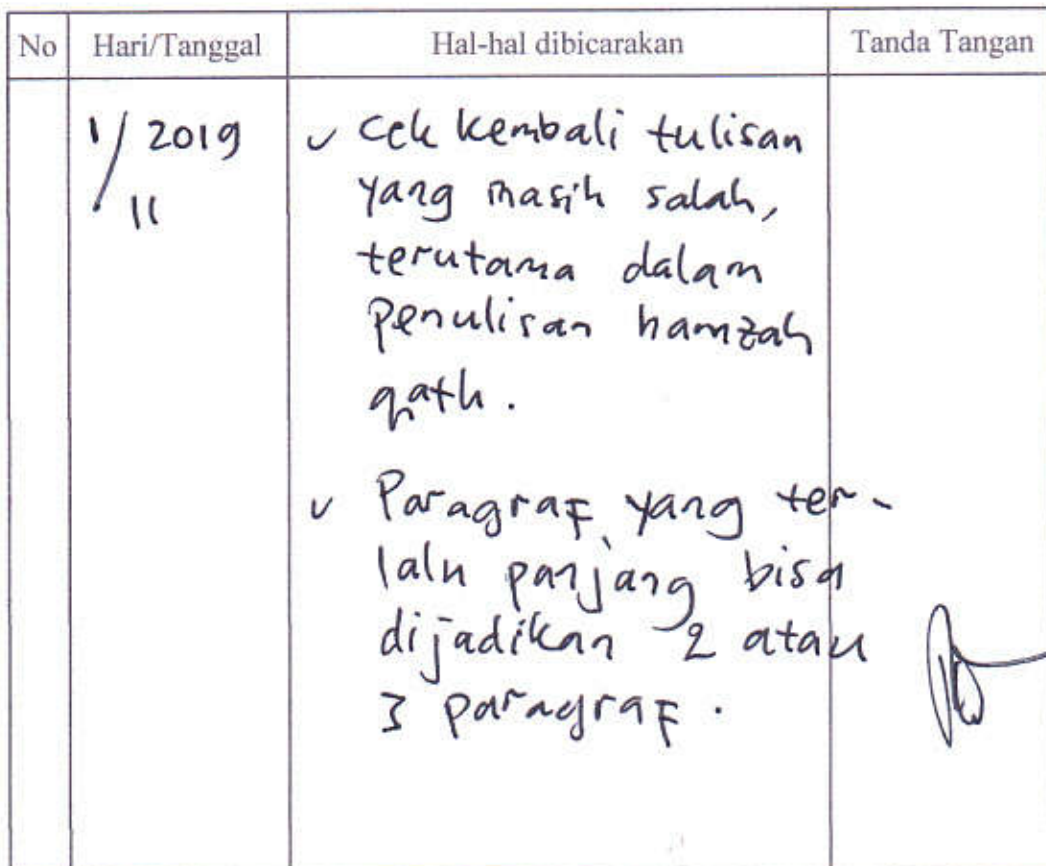 No Hari/Tanggal Hal-hal dibicarakan Tanda Tangan
1/11 2019
cek kembali tulisan
yang masih salah,
terutama dalam
penulisan hamzah
qath.
Paragraf yang ter-
lalu panjang bisa
dijadikan 2 atau
3 paragraf.